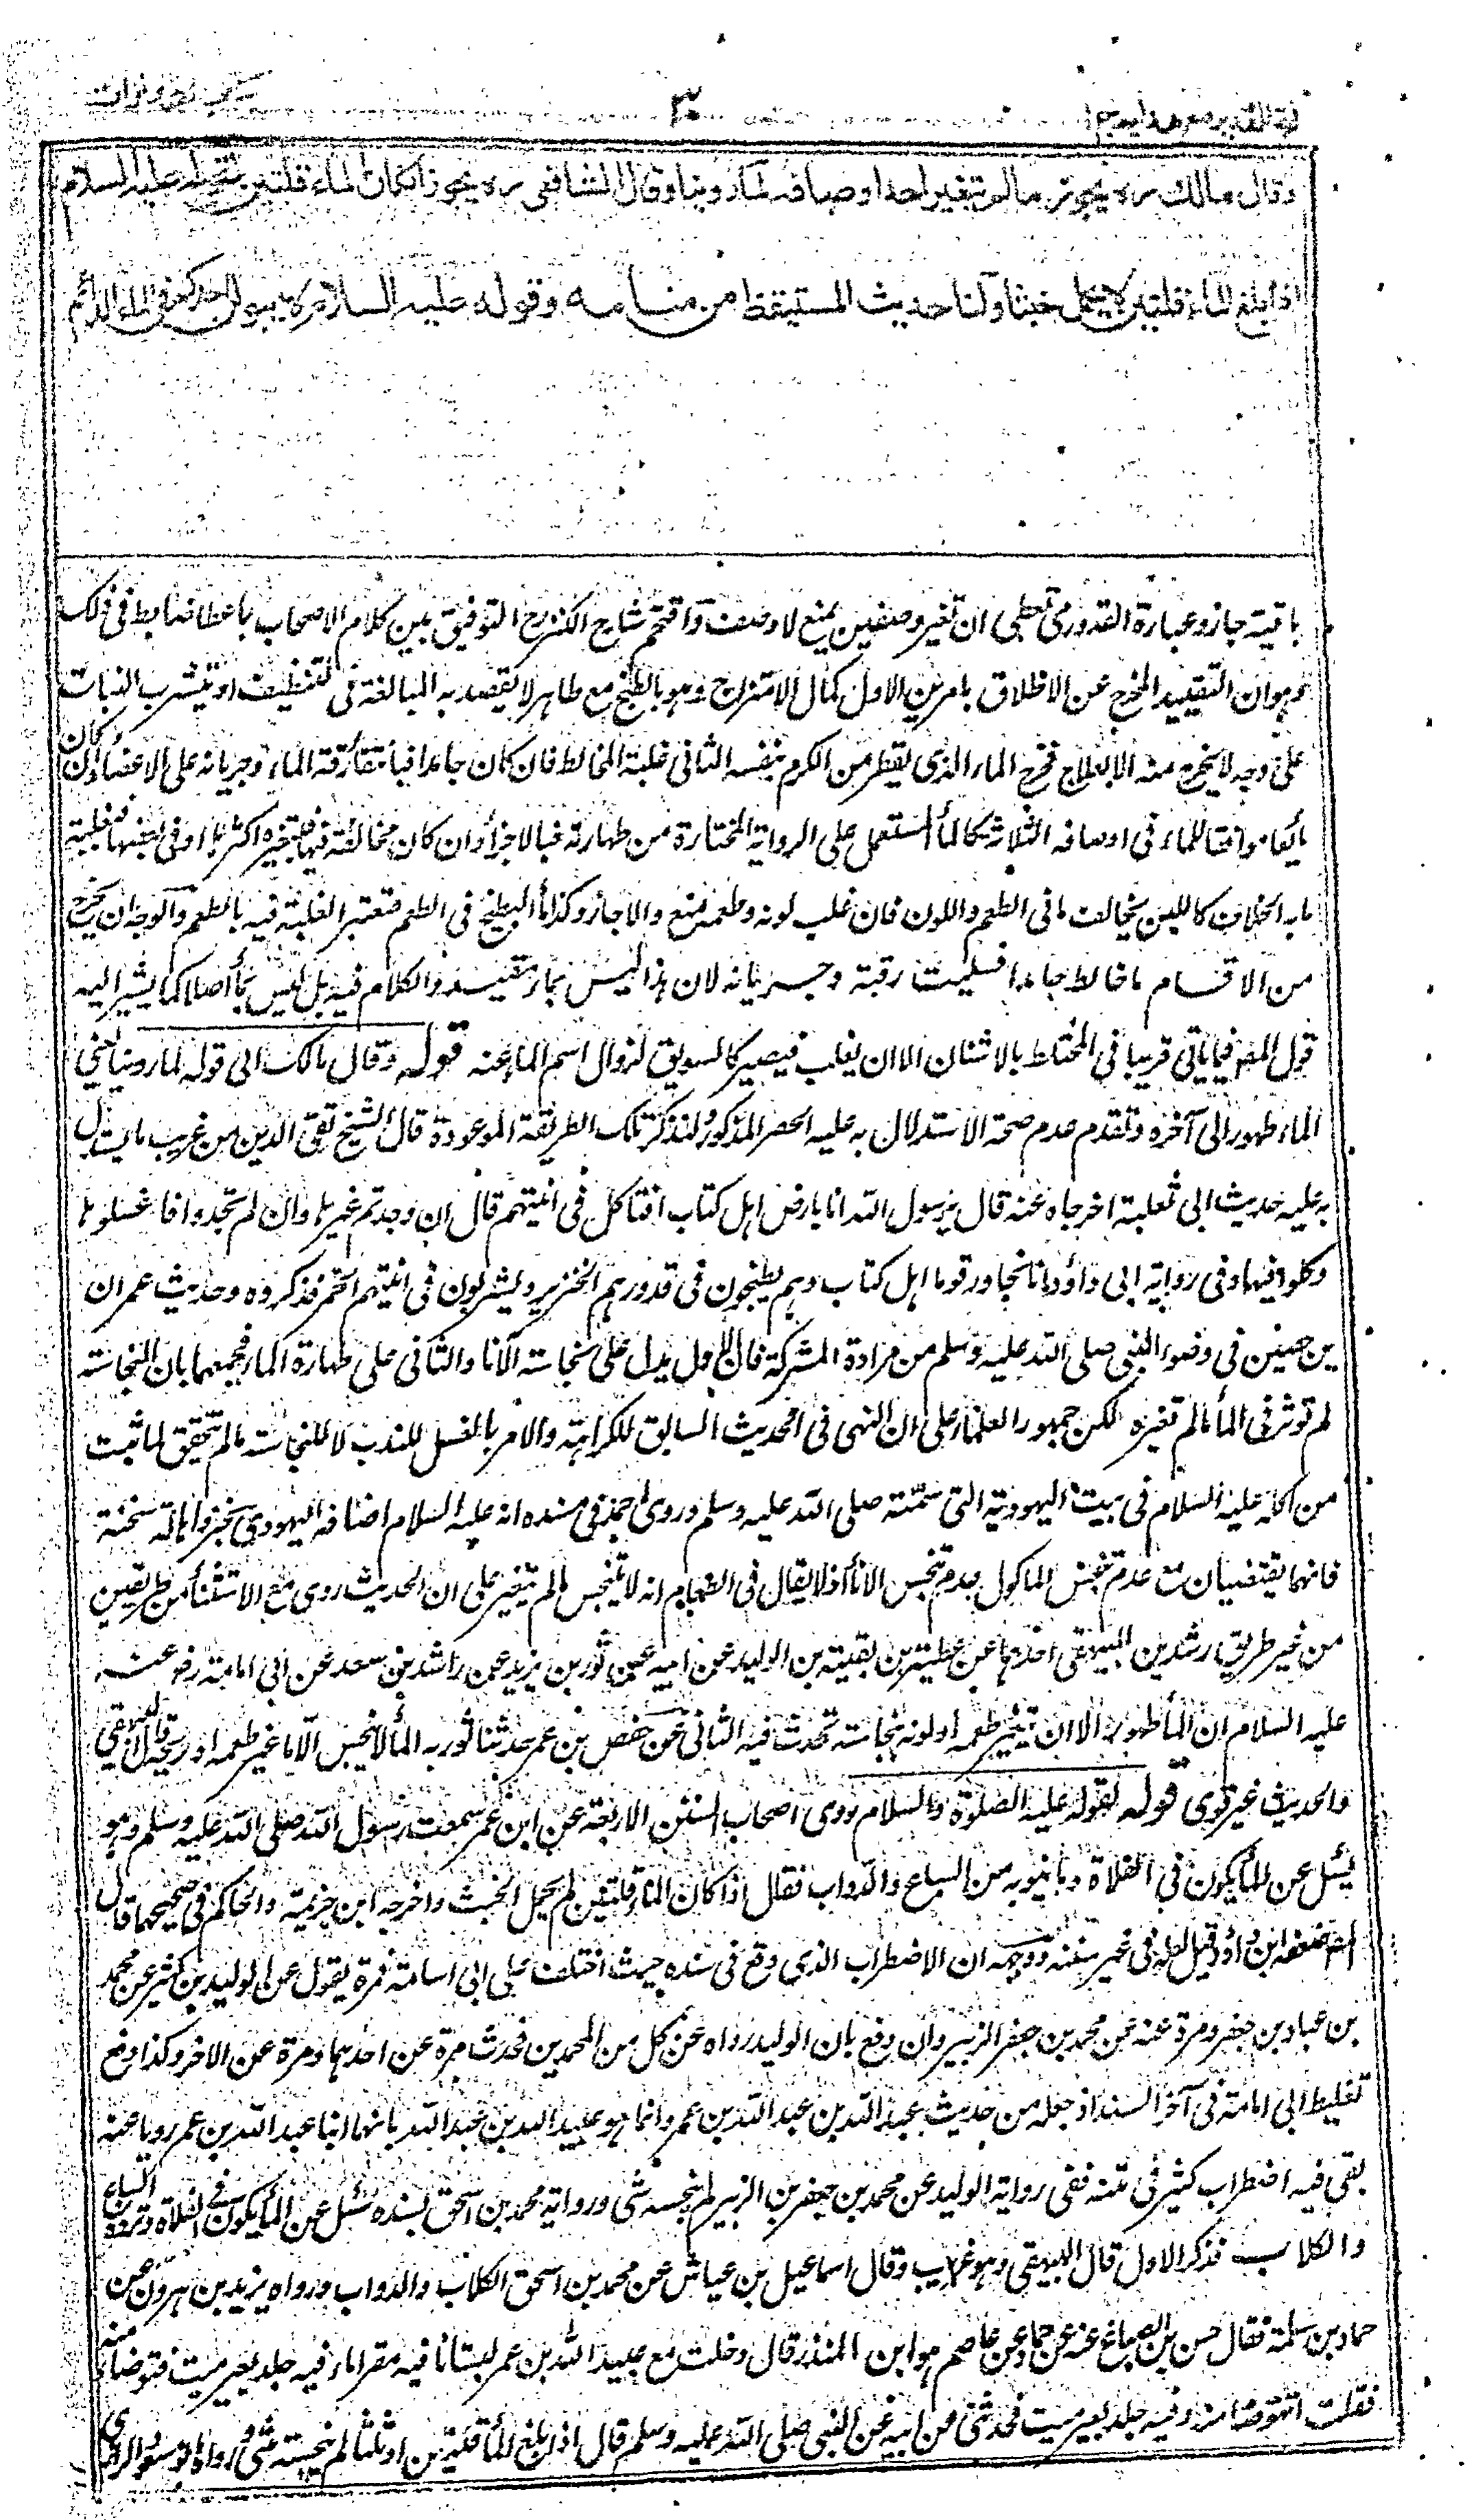 ٣٠
وقال مالك رہ يجوز مالم يتغير احد اوصافه لما روينا وقال الشافعي رہ يجوز اذا كان الماء قلتين لقوله عليه السلام
اذا بلغ الماء قلتين لا يحمل خبثا ولنا حديث المستيقظ من منامه وقوله عليه السلام لا يبولن احدكم في الماء الدائم
باقية جاز وعبارة القدوري تعطي ان تغير وصفين يمنع لا وصف واقتحم شارح الكنز رح التوفيق بين كلام الاصحاب باعطاء ضابط في ذلك
وهو ان التقييد المخرج عن الاطلاق بامرين الاول كمال الامتزاج وهو بالطبخ مع طاهر لا يقصد به المبالغة في التنظيف او بتشرب النبات
على وجه لا يخرج منه الا بعلاج فخرج الماء الذي يقطر من الكرم بنفسه الثاني غلبة المخالط فان كان جامدا فبانتفاء رقة الماء وجريانه على الاعضاء وان كان
مائعا موافقا للماء في اوصافه الثلاثة كالماء المستعمل على الرواية المختارة من طهارته فبالاجزاء وان كان مخالفه فيها فبتغيره اكثرها او في بعضها فبغلبة
ما به الخلاف كاللبن يخالف ما في الطعم واللون فان غلب لونه وطعمه منع والا جاز وكذا ماء البطيخ في الطعم فتعتبر الغلبة فيه بالطعم والوجه ان يخرج
من الاقسام ما خالط جامدا فسلبت رقته وجريانه لان هذا ليس بماء مقيد والكلام فيه بل ليس بماء اصلا كما يشير اليه
قول المصنف فيما ياتي قريبا في المختلط بالاشنان الا ان يغلب فيصير كالسويق لزوال اسم الماء عنه قوله وقال مالك الى قوله لما روينا يعني
الماء طهور الى آخره وتقدم عدم صحة الاستدلال به عليه الحصر المذكور ولنذكر تلك الطريقة الموعودة قال الشيخ تقي الدين من غريب ما يستدل
به عليه حديث ابي ثعلبة اخرجاه عنه قال يرسول الله انا بارض اهل كتاب افنأكل في آنيتهم قال ان وجدتم غيرها وان لم تجدوا فاغسلوها
وكلوا فيها وفي رواية ابي داؤد انا نجاور قوما اهل كتاب وهم يطبخون في قدورهم الخنزير ويشربون في آنيتهم الخمر فذكروه وحديث عمران
بن حصين في وضوء النبي صلى الله عليه وسلم من مزادة المشركة فان الاول يدل على نجاسة الانا والثاني على طهارة الماء فجمعهما بان النجاسة
لم توثر في الماء مالم تغيره لكن جمهور العلماء على ان النهي في الحديث السابق للكراهة والامر بالغسل للندب لا للنجاسة مالم يتحقق لما ثبت
من اكله عليه السلام في بيت اليهودية التي سمته صلى الله عليه وسلم وروى احمد في مسنده انه عليه السلام اضافه اليهودي بخبز واهالة سنخة
فانهما يقتضيان مع عدم تنجس الماكول عدم تنجس الاناء اذ لا يقال في الطعام انه لا يتنجس مالم يتغير على ان الحديث روى مع الاستثناء من طريقين
من غير طريق رشدين البيهقي احدهما عن عطية بن بقية بن الوليد عن ابيه عن ثور بن يزيد عن راشد بن سعد عن ابي امامة رض عنه
عليه السلام ان الماء طهور الا ان تغير طعمه او لونه بنجاسة تحدث فيه الثاني عن حفص بن عمر حدثنا ثور به الماء لا ينجس الا ما غير طعمه او ريحه قال البيهقي
والحديث غير قوي قوله لقوله عليه الصلوة والسلام روى اصحاب السنن الاربعة عن ابن عمر سمعت رسول الله صلى الله عليه وسلم وهو
يسئل عن الماء يكون في الفلاة وما ينوبه من السباع والدواب فقال اذا كان الماء قلتين لم يحمل الخبث واخرجه ابن خزيمة والحاكم في صحيحهما قال
ضعفه ابن داؤد قيل لعله في غير سننه ووجهه ان الاضطراب الذي وقع في سنده حيث اختلف على ابي اسامة فمرة يقول عن الوليد بن كثير عن محمد
بن عباد بن جعفر ومرة عنه عن محمد بن جعفر الزبير وان دفع بان الوليد رواه عن كل من المحمدين فحدث مرة عن احدهما ومرة عن الاخر وكذا دفع
تغليط ابي امامة في آخر السند اذ جعله من حديث عبد الله بن عبد الله بن عمر وانما هو عبيد الله بن عبد الله بانهما ابنا عبد الله بن عمر رويا عنه
بقي فيه اضطراب كثير في متنه ففي رواية الوليد عن محمد بن جعفر بن الزبير لم ينجسه شي ورواية محمد بن اسحق بسنده سئل عن الماء يكون في الفلاة وترده السباع
والكلاب فذكر الاول قال البيهقي وهو غريب وقال اسماعيل بن عياش عن محمد بن اسحق الكلاب والدواب ورواه يزيد بن هرون عن
حماد بن سلمة فقال حسن بن الصباغ عنه عن حماد عن عاصم هو ابن المنذر قال دخلت مع عبيد الله بن عمر بستانا فيه مقراء ماء فيه جلد بعير ميت فتوضا منه
فقلت اتتوضا منه وفيه جلد بعير ميت فحدثني عن ابيه عن النبي صلى الله عليه وسلم قال اذا بلغ الماء قلتين او ثلثا لم ينجسه شي ورواه ابو مسعود الرازي